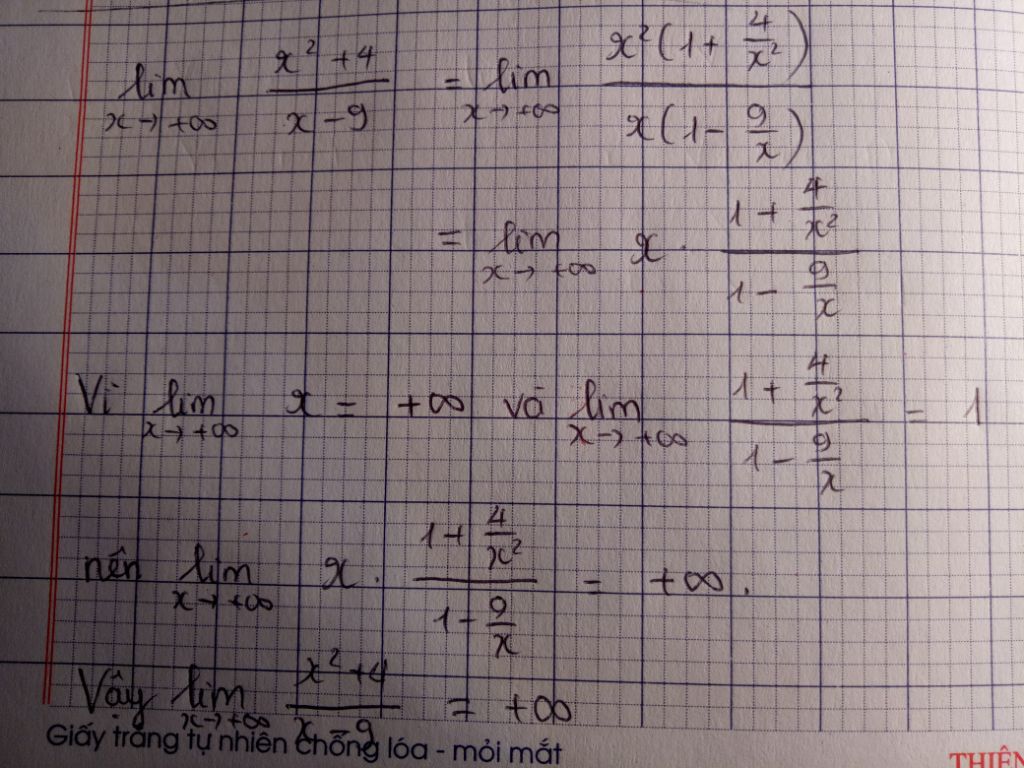 lim x→+∞ (x² + 4)/(x − 9) = lim x→+∞ (x²(1 + 4/x²))/(x(1 − 9/x))
= lim x→+∞ x · (1 + 4/x²)/(1 − 9/x)
Vì lim x→+∞ x = +∞ và lim x→+∞ (1 + 4/x²)/(1 − 9/x) = 1
nên lim x→+∞ x · (1 + 4/x²)/(1 − 9/x) = +∞.
Vậy lim x→+∞ (x² + 4)/(x − 9) = +∞
Giấy trắng tự nhiên chống lóa - mỏi mắt
THIÊN